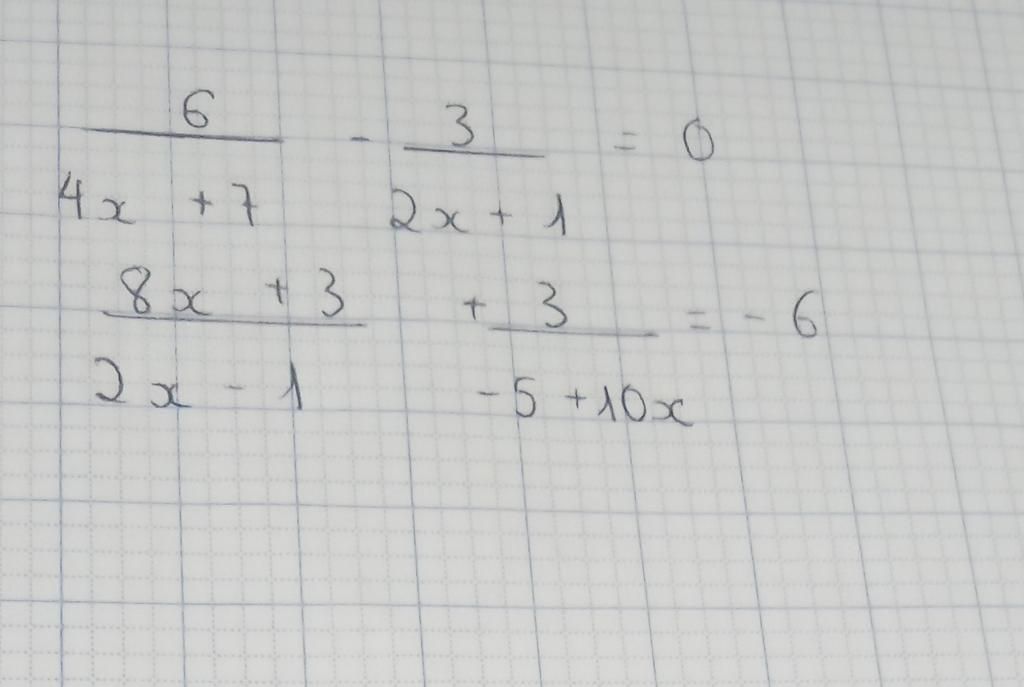 6/(4x + 7) - 3/(2x + 1) = 0
(8x + 3)/(2x - 1) + 3/(-5 + 10x) = - 6